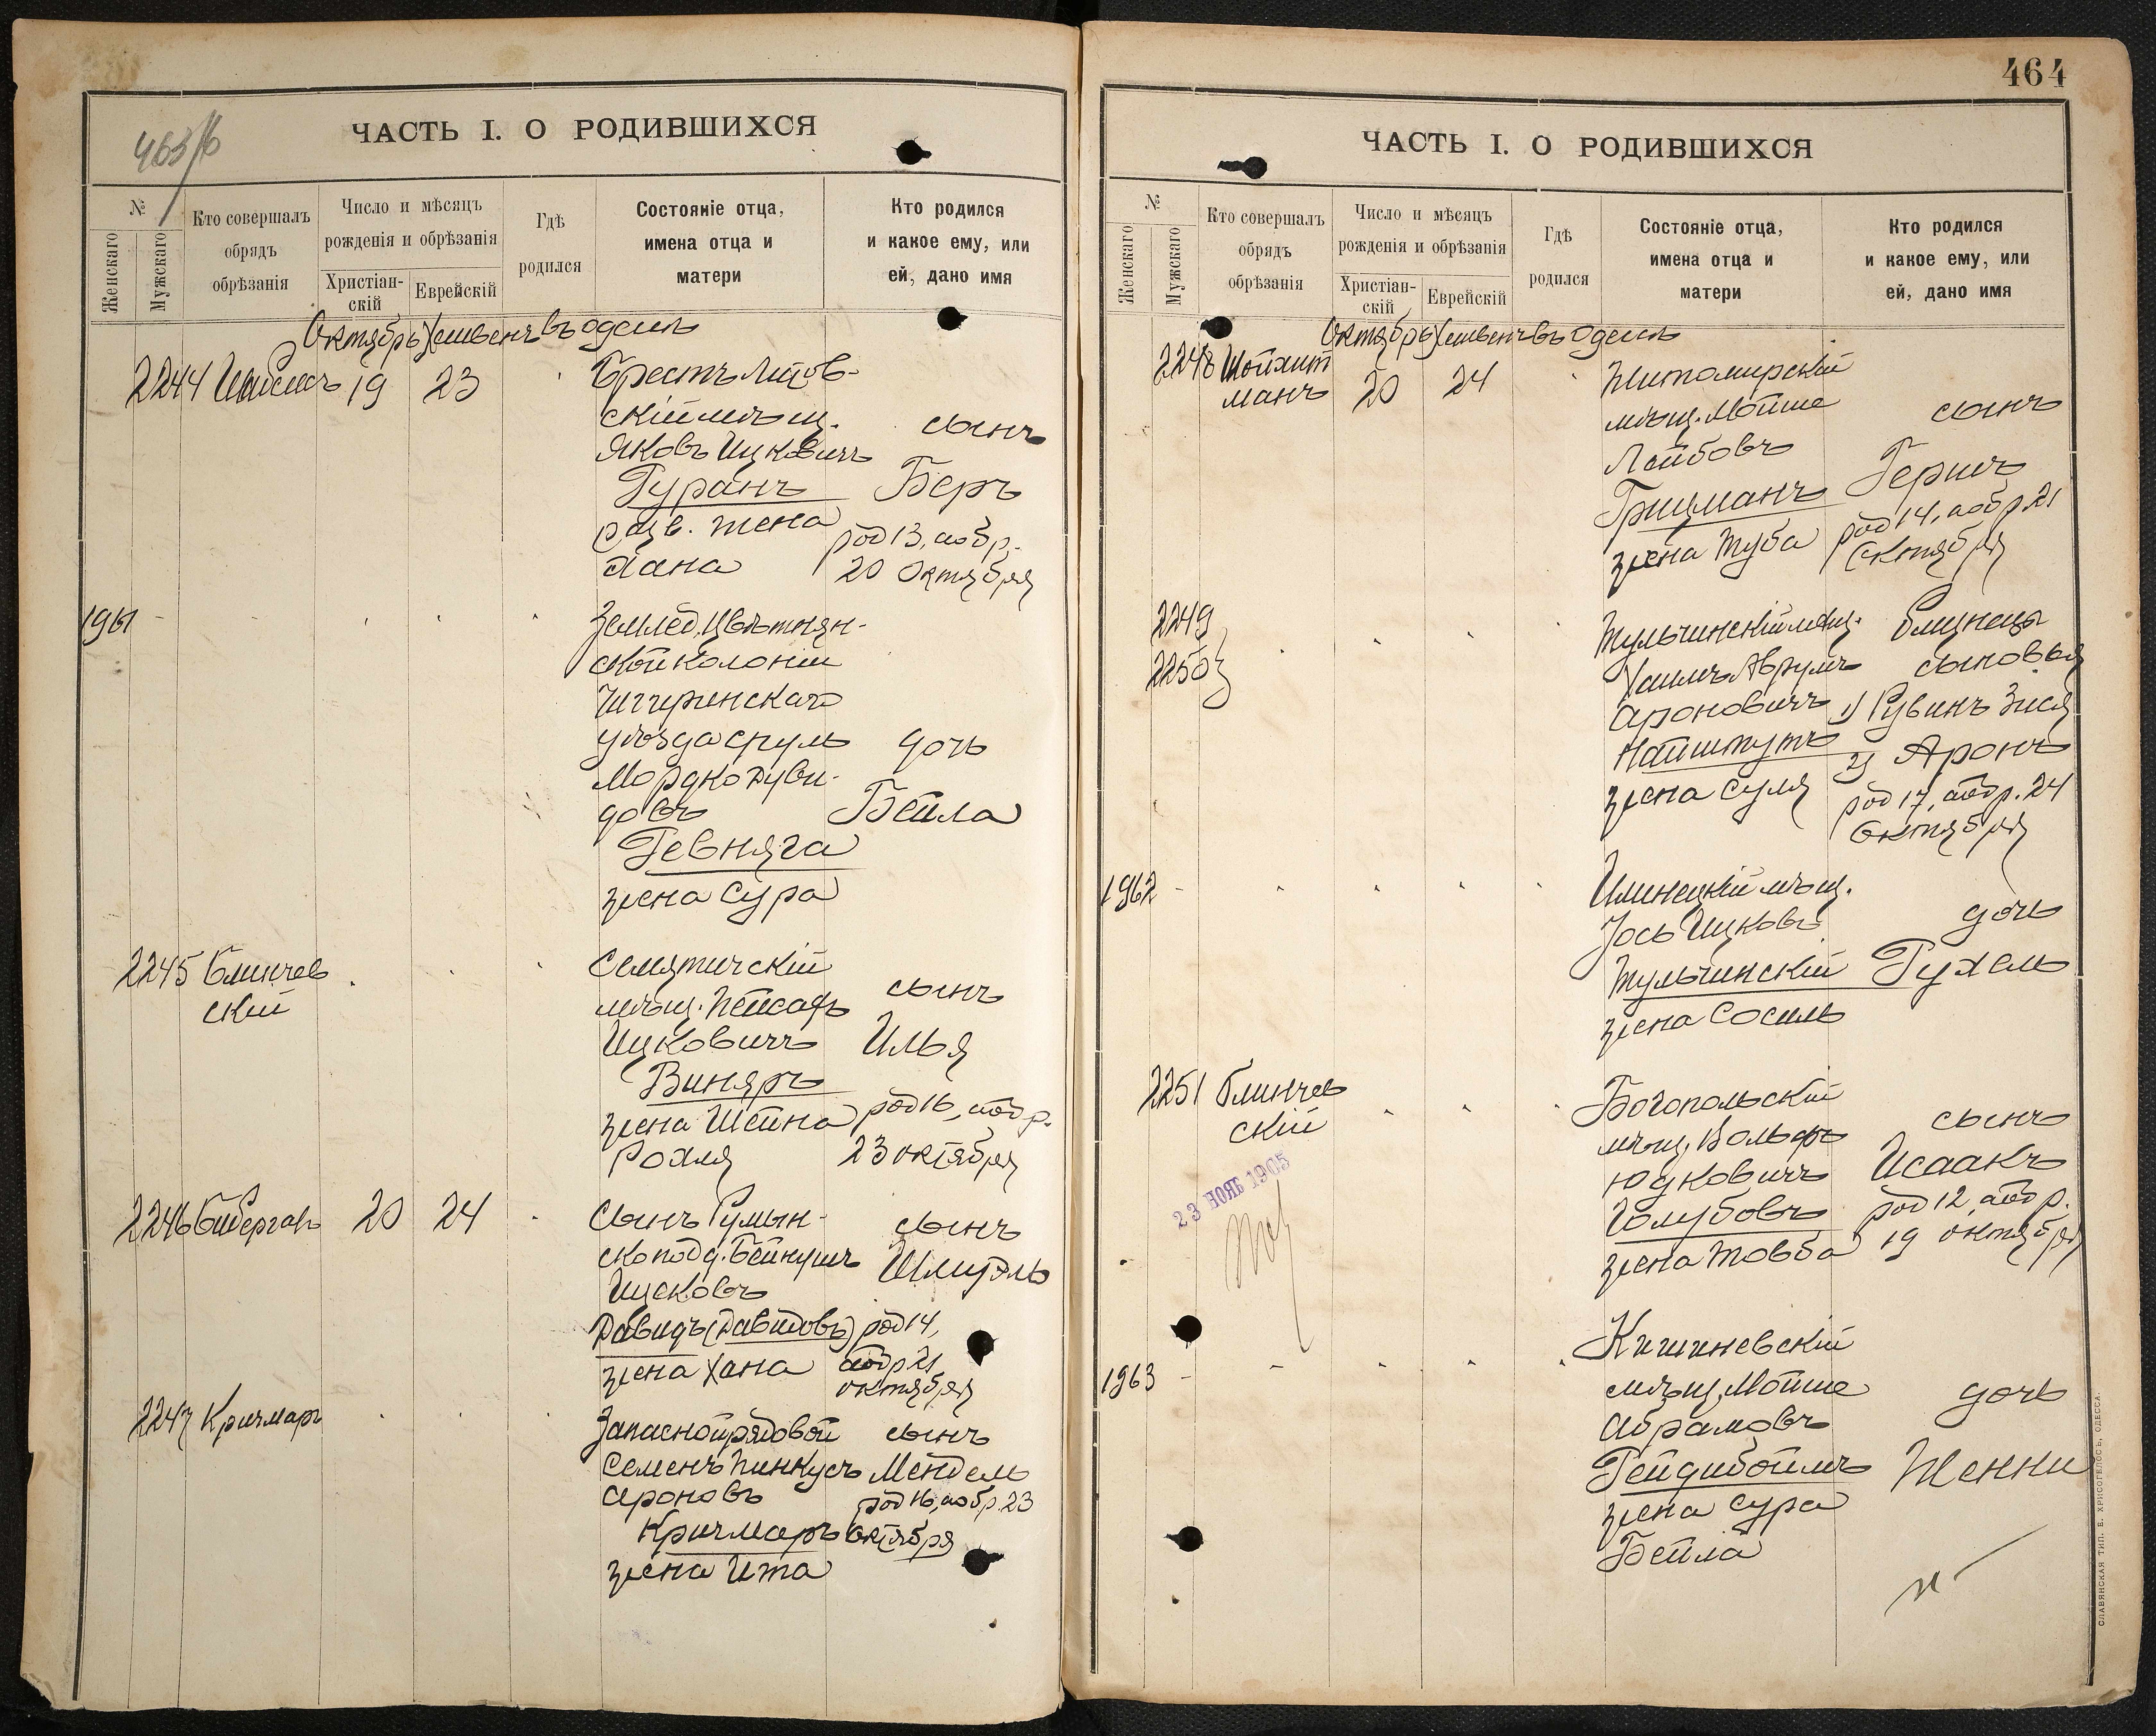 ЧАСТЬ I. О РОДИВШИХСЯ
№
Женскаго
Мужскаго
Кто совершалъ
обрядъ
обрѣзанія
Число и мѣсяцъ
рожденія и обрѣзанія
Христіан-
скій
Еврейскій
Гдѣ
родился
Состояніе отца,
имена отца и
матери
Кто родился
и какое ему, или
ей, дано имя
Октябрь Хешвенъ въ Одессѣ
2244
19 23
Брестъ Литов-
скій мѣщ.
Яковъ Ицковичъ
Гуранъ
разв. жена
Хана
сынъ
Беръ
род 13, а обр.
20 Октября
1961
Землед. Цвѣтнян-
ской колоніи
Чигиринскаго
уѣзда Сруль
Мордко Дуви-
довъ
Гевняга
жена Сура
дочь
Бейла
2245 Блинчев
скій
Семятичскій
мѣщ. Пейсахъ
Ицковичъ
Виняръ
жена Шейна
Рохля
сынъ
Илья
род 16, а обр.
23 октября
2246
20 24
Сынъ Румын-
ско подд. Бейнушъ
Ицковъ
Давидъ (Давидовъ)
жена Хана
сынъ
Шмуэль
род 14,
а обр 21
октября
2247 Кричмаръ
Запасной рядовой
Семенъ Пинкусъ
Ароновъ
Кричмаръ
жена Ита
сынъ
Мендель
род 16, а обр. 23
октября
464
ЧАСТЬ I. О РОДИВШИХСЯ
№
Женскаго
Мужскаго
Кто совершалъ
обрядъ
обрѣзанія
Число и мѣсяцъ
рожденія и обрѣзанія
Христіан-
скій
Еврейскій
Гдѣ
родился
Состояніе отца,
имена отца и
матери
Кто родился
и какое ему, или
ей, дано имя
Октябрь Хешвенъ въ Одессѣ
2248 Шойхит
манъ
20 24
Житомирскій
мѣщ. Мойше
Лейбовъ
Грицманъ
жена Туба
сынъ
Гершъ
род 14, а обр 21
Октября
2249
2250
Тульчинскій мѣщ.
Хаимъ Аврумъ
Ароновичъ
Найштутъ
жена Суля
Близнецы
сыновья
1) Рувинъ Зися
2) Аронъ
род 17, а обр. 24
Октября
1962
Илинецкій мѣщ.
Іось Ицковъ
Тульчинскій
жена Сосель
дочь
Рухель
2251 Блинчев
скій
Богопольскій
мѣщ. Вольфъ
Юдковичъ
Голубовъ
жена Товба
сынъ
Исаакъ
род 12, а обр.
19 октября
23 НОЯБ 1905
1963
Кишиневскій
мѣщ. Мойше
Абрамовъ
Рейдибоймъ
жена Сура
Бейла
дочь
Женни
СЛАВЯНСКАЯ ТИП. Е. ХРИСОГЕЛОСЪ, ОДЕССА.